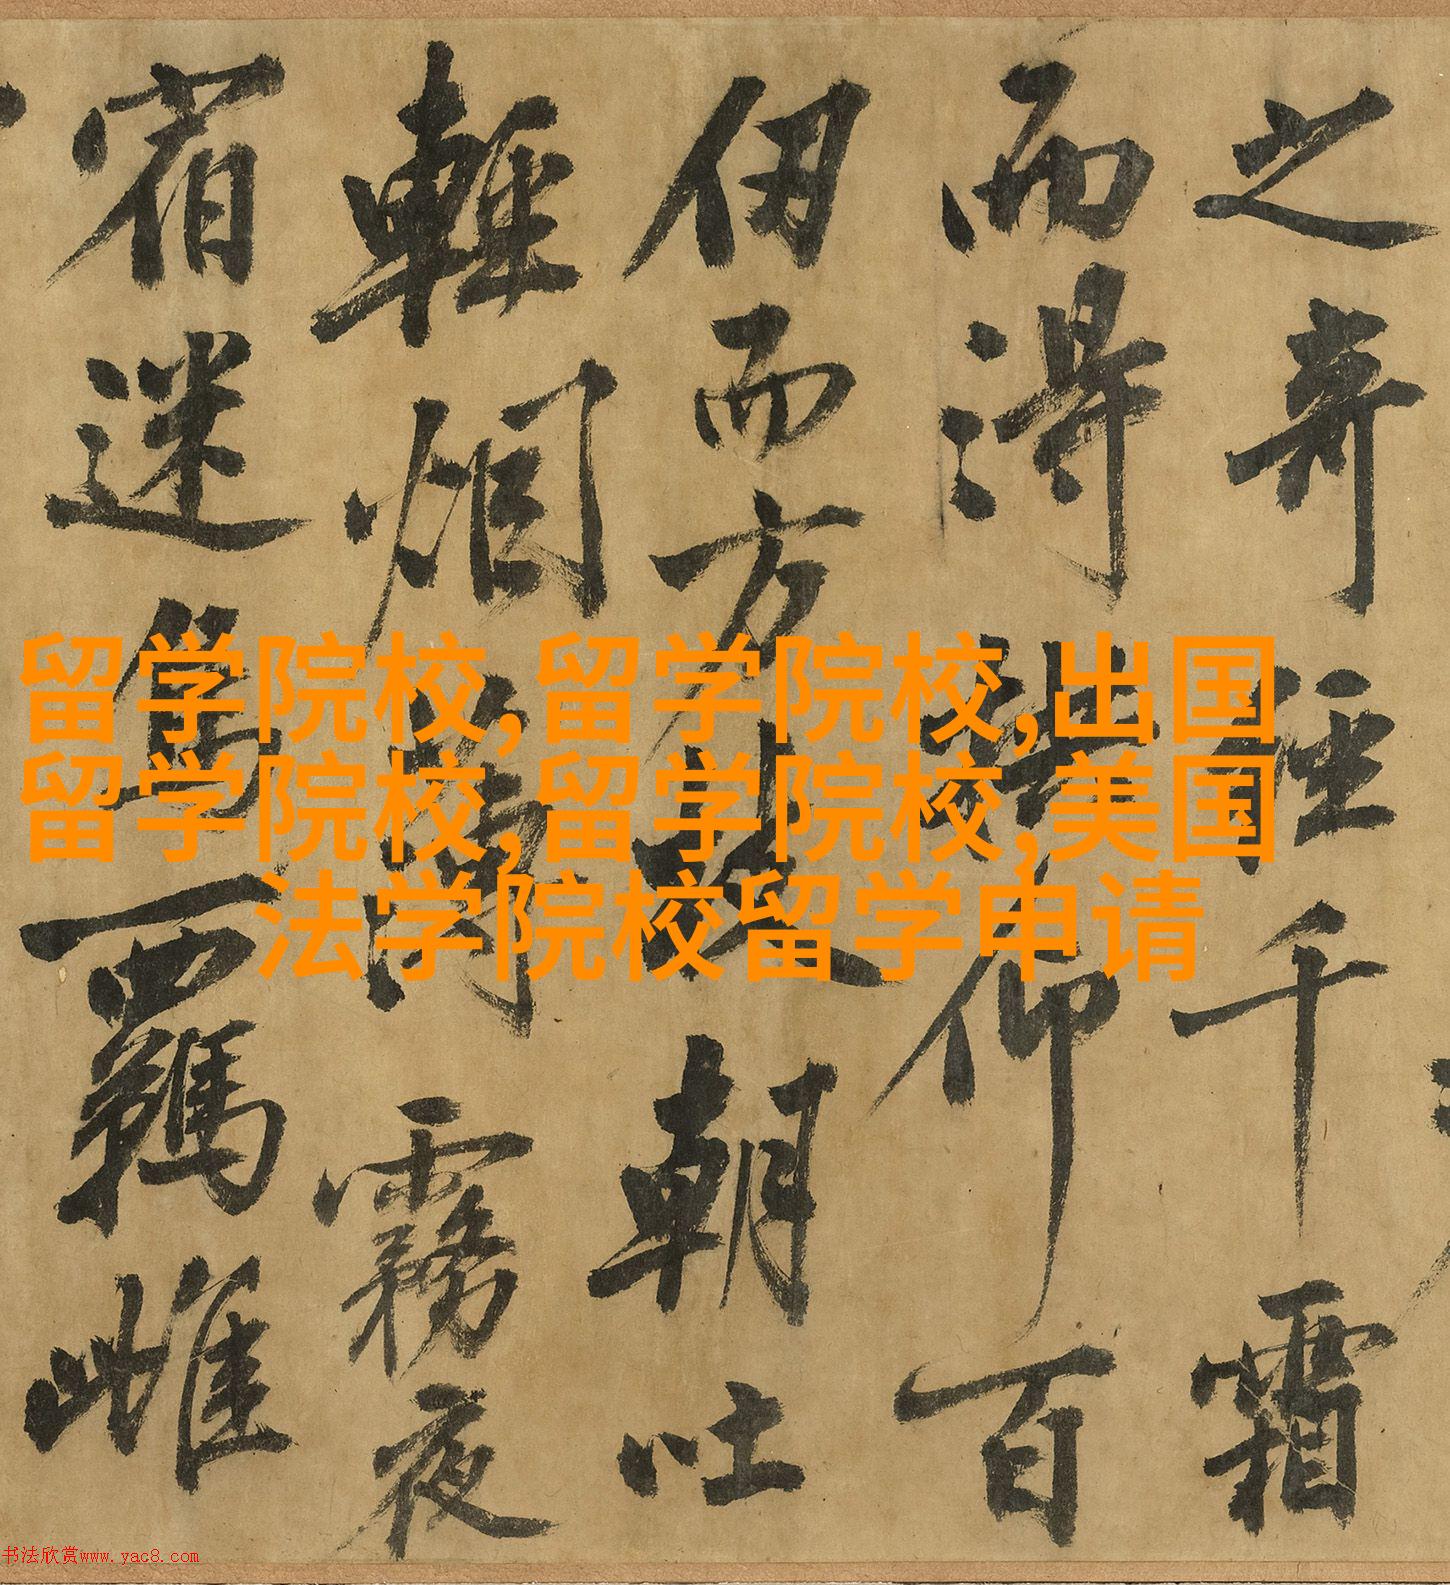 之奇經千霜
而得拱仰百
仞而方枝朝吐
輕烟薄霧夜
宿迷鳥羈雌
留学院校,留学院校,出国
留学院校,留学院校,美国
法学院校留学申请
书法欣赏www.yac8.com